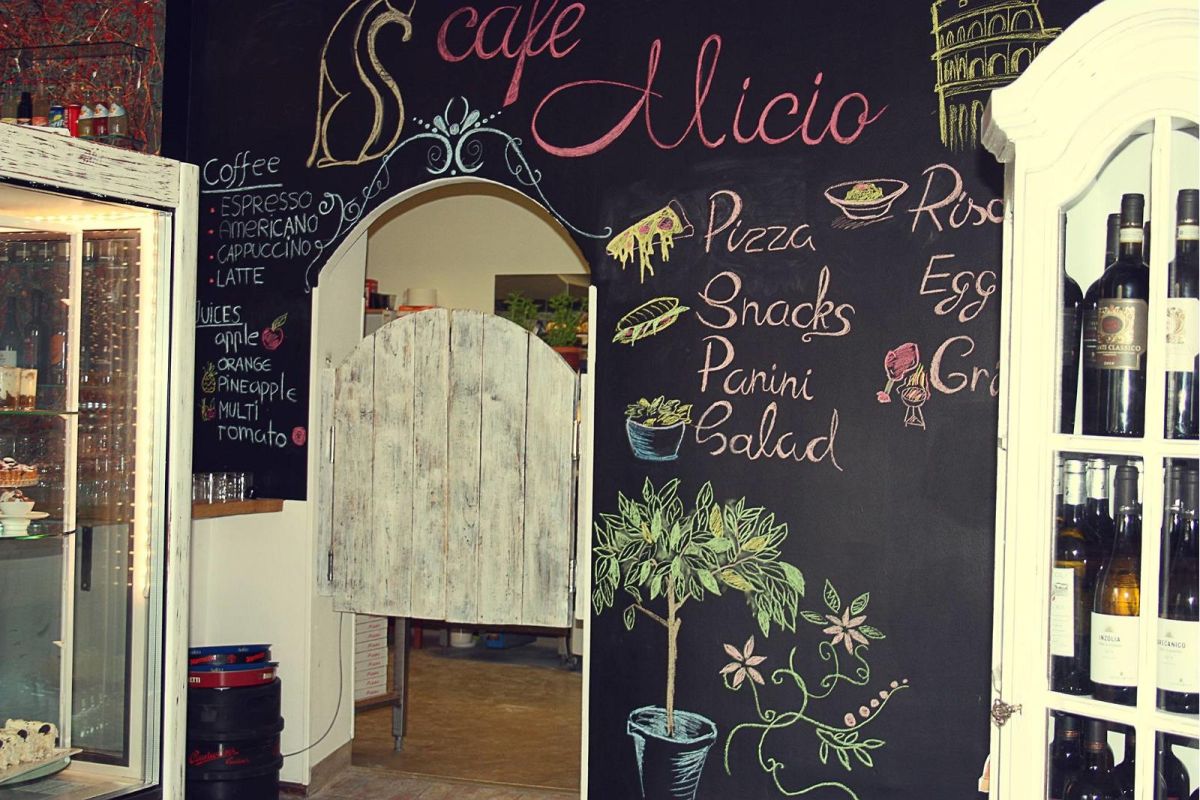 cafe
Micio
Coffee
ESPRESSO
AMERICANO
CAPPUCCINO
LATTE
JUICES
apple
ORANGE
PINEapple
MULTI
Tomato
Pizza
Snacks
Panini
Salad
Egg
CLASSICO
INZOLIA